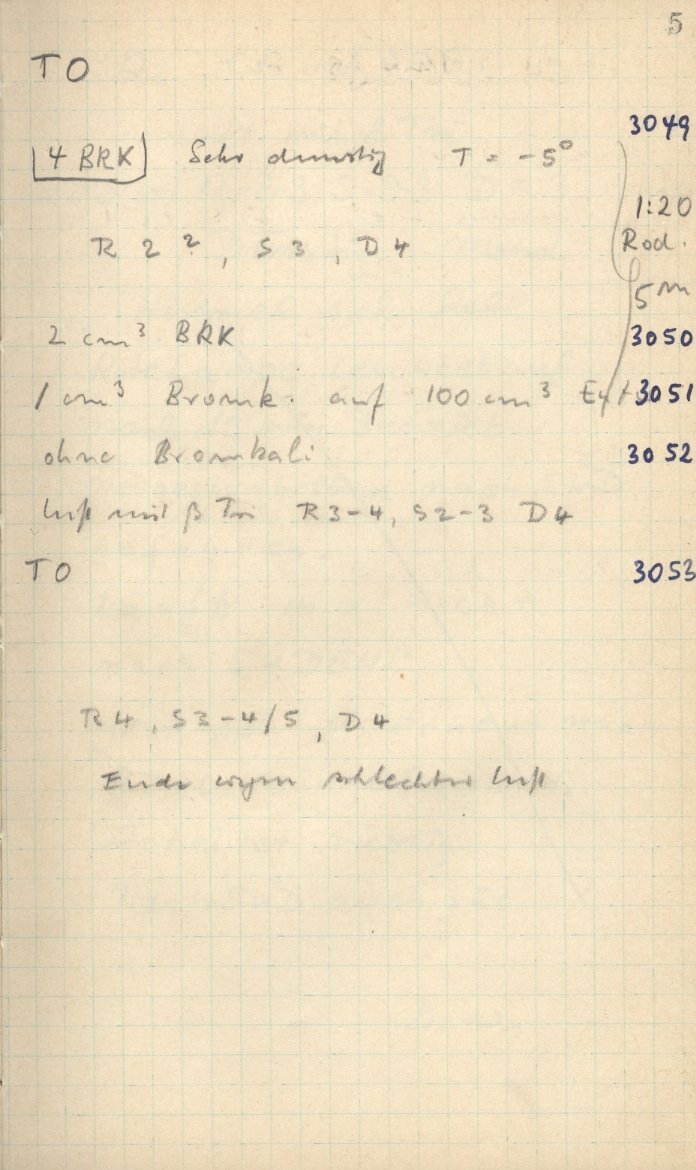 5
TO
3049
4 BRK Sehr dunstig T = -5°
1:20
Rod.
R 2 ?, S 3, D 4
5 m
2 cm³ BRK 3050
1 cm³ Bromk. auf 100 cm³ 3051
ohne Bromkali 3052
Luft mit β Tri R3-4, S2-3 D4
TO 3053
R4, S3-4/5, D4
Ende wegen schlechter Luft